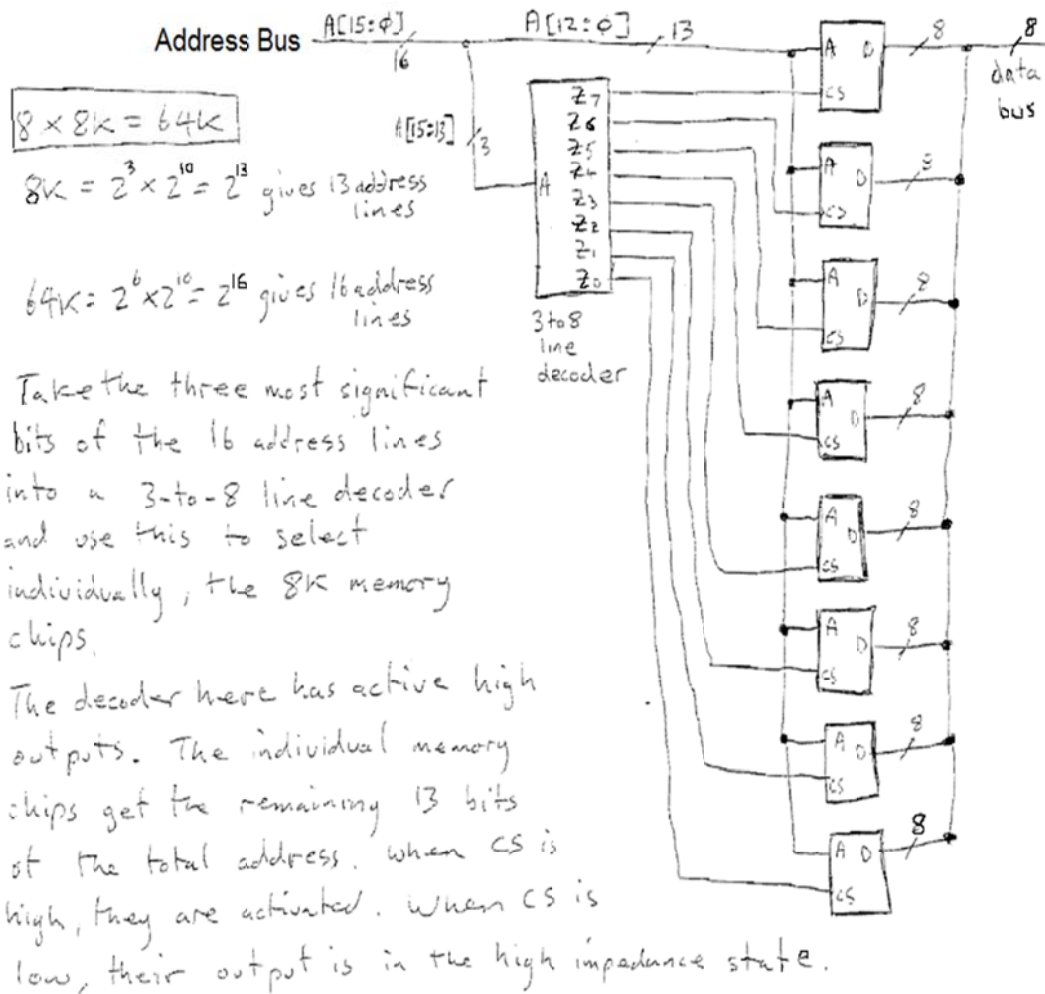 Address Bus
A[15:φ]
16
A[12:φ]
13
A[15:13]
3
8 × 8K = 64K
8K = 2³ × 2¹⁰ = 2¹³ gives 13 address
lines
64K = 2⁶ × 2¹⁰ = 2¹⁶ gives 16 address
lines
Take the three most significant
bits of the 16 address lines
into a 3-to-8 line decoder
and use this to select
individually, the 8K memory
chips.
The decoder here has active high
outputs. The individual memory
chips get the remaining 13 bits
of the total address. When CS is
high, they are activated. When CS is
low, their output is in the high impedance state.
A
Z7
Z6
Z5
Z4
Z3
Z2
Z1
Z0
3 to 8
line
decoder
A D
CS
8
A D
CS
8
A D
CS
8
A D
CS
8
A D
CS
8
A D
CS
8
A D
CS
8
A D
CS
8
8
data
bus